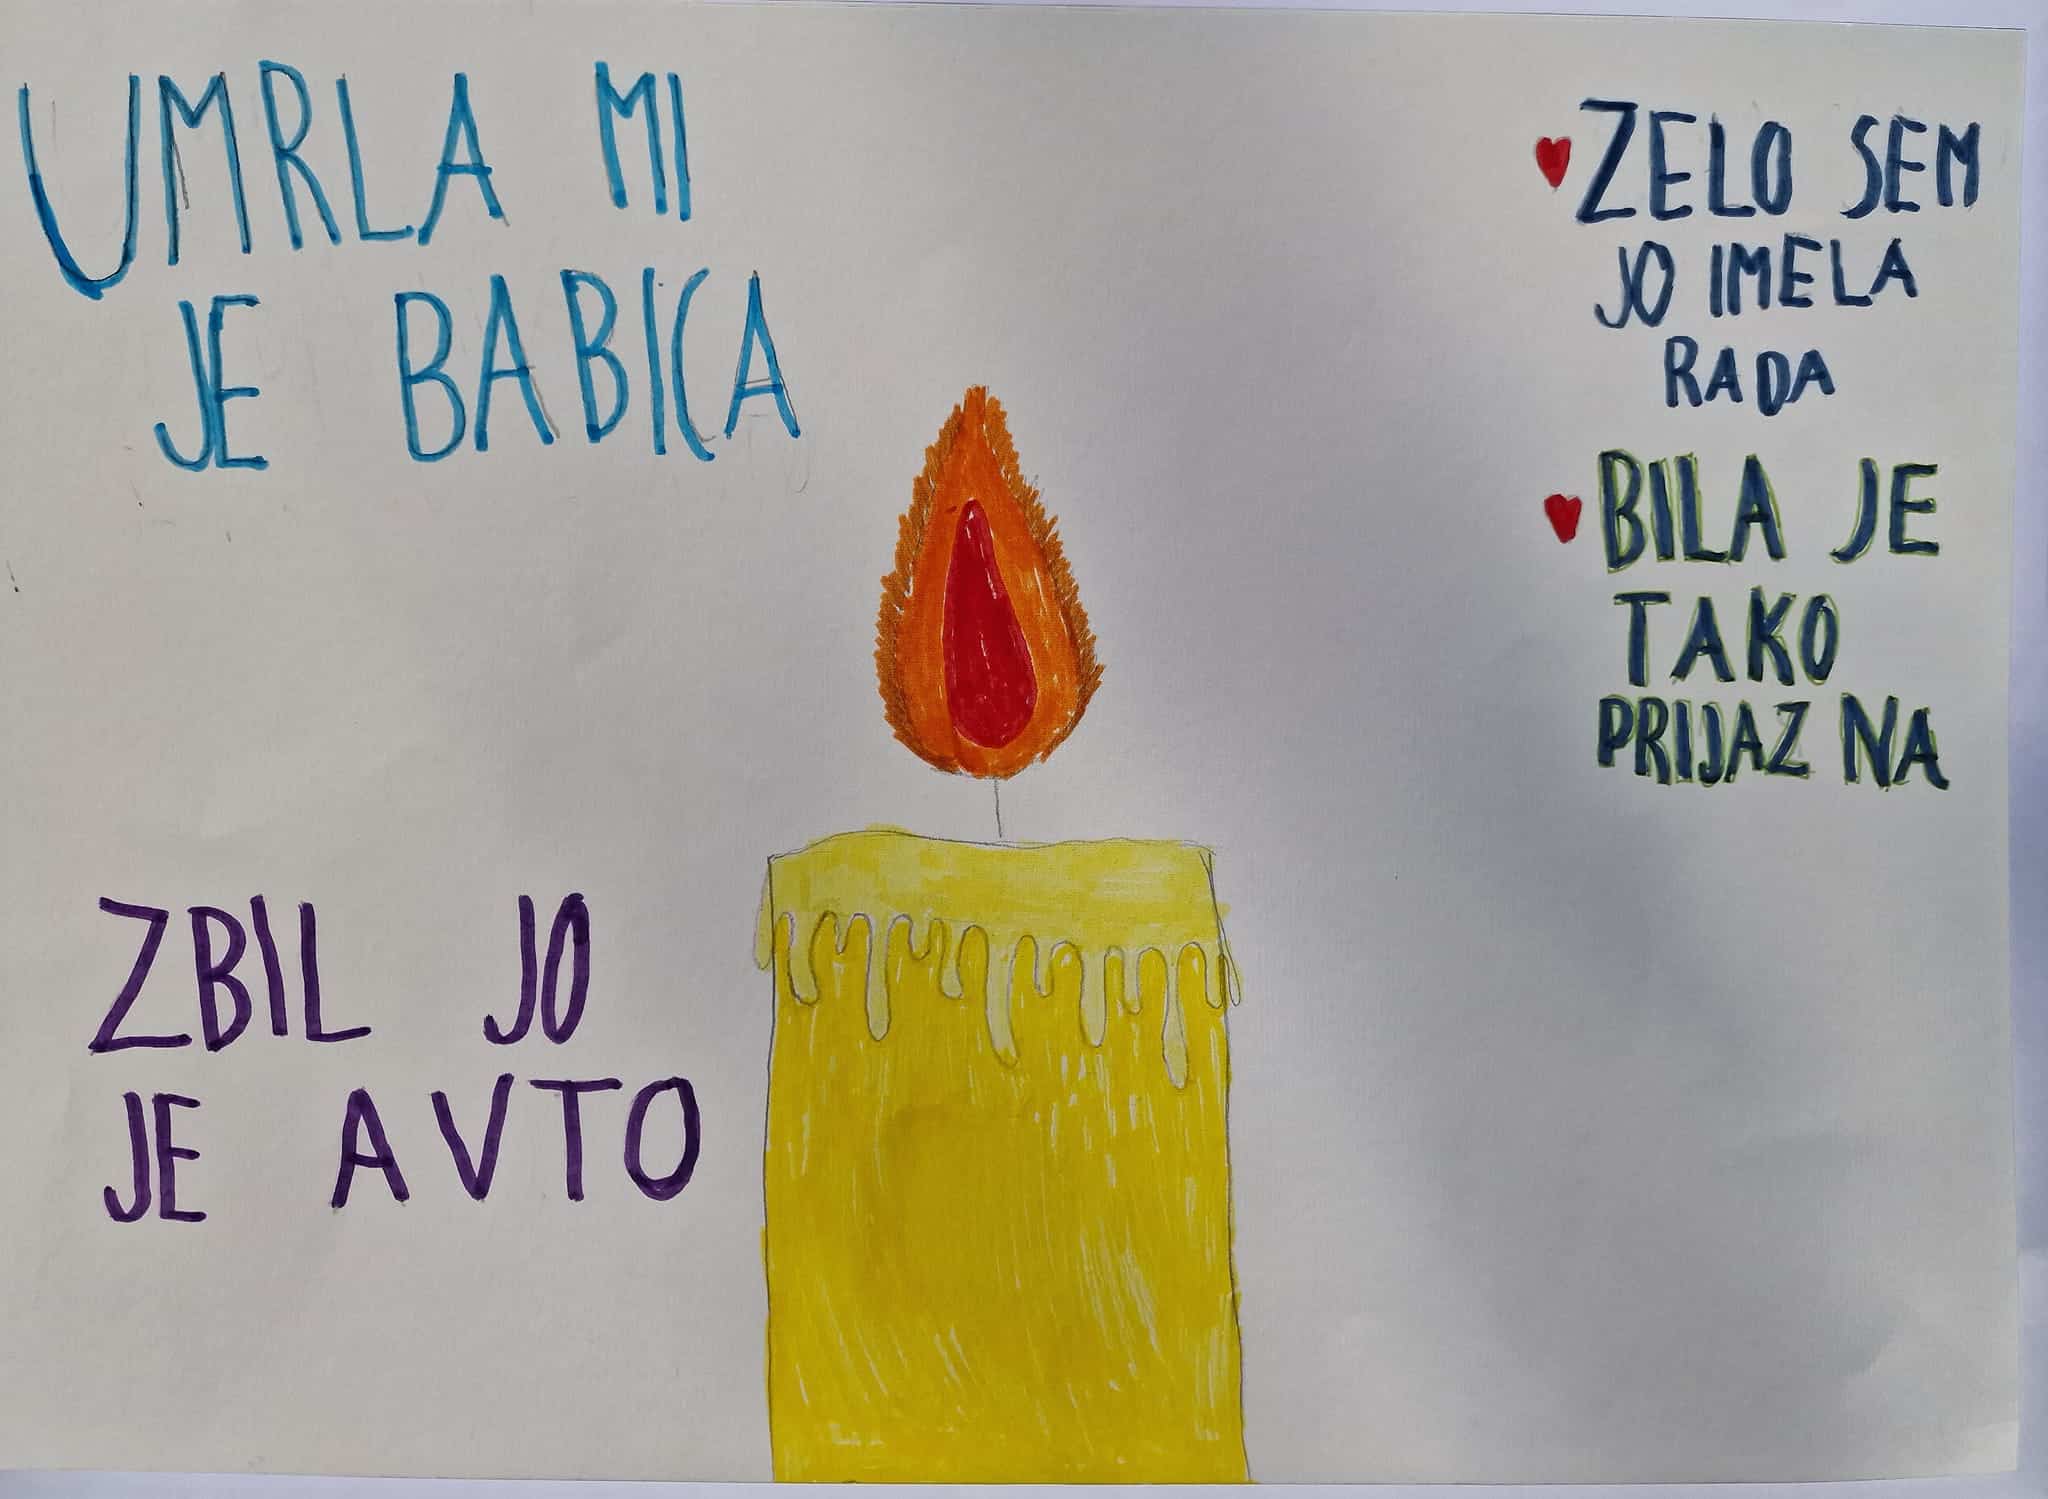 UMRLA MI
JE BABICA
ZBIL JO
JE AVTO
ZELO SEM
JO IMELA
RADA
BILA JE
TAKO
PRIJAZNA